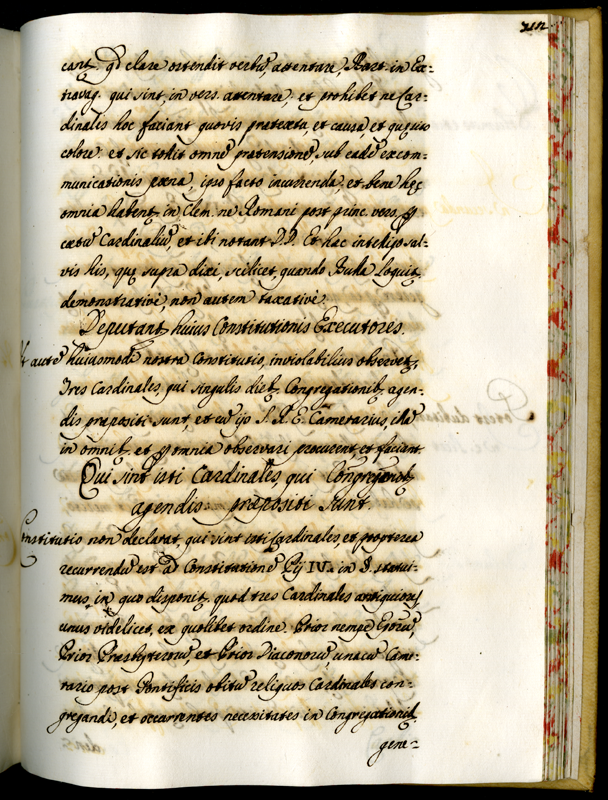 212
cant, qd clare ostendit verbũ, attentare, Bart. in Ex=
travag. qui sint, in vers. attentare, et prohibet ne Car=
dinales hoc faciant quovis pretextu, et causa et quęsito
colore: et sic tollit omnẽ pretensionẽ, sub eadẽ excom=
municationis poena, ipso facto incurrenda, et bene hęc
omnia habent, in Clem. ne Romani post princ. vers.
coetũ Cardinaliũ, et ibi notant DD. Et hac intelligo sal=
vis his, quę supra dixi, scilicet, quando Bulla loquit,
demonstrative, non autem taxative.
Deputant huius Constitutionis Executores.
Ut autẽ huiusmodi nostra Constitutio, inviolabilius observet,
Tres Cardinales, qui singulis dieb, Congregationib, agen=
dis prępositi sunt, et cũ ijs S. R. E. Camerarius, illa
in omnib, et omnia observari procurent, et faciant.
Qui sint isti Cardinales, qui Congregationib,
agendis prępositi sunt.
Constitutio non declarat, qui sint isti Cardinales, et propterea
recurrendũ est ad Constitutionẽ Pij IV. in §. statui=
mus, in quo disponit, quod tres Cardinales antiquiores
unus videlicet, ex quolibet ordine. Prior nempe Eporũ,
Prior Presbyterorũ, et Prior Diaconorũ, unacũ Came=
rario post Pontificis obitũ reliquos Cardinales con=
gregandi, et occurrentes necessitates in Congregationib,
gene=